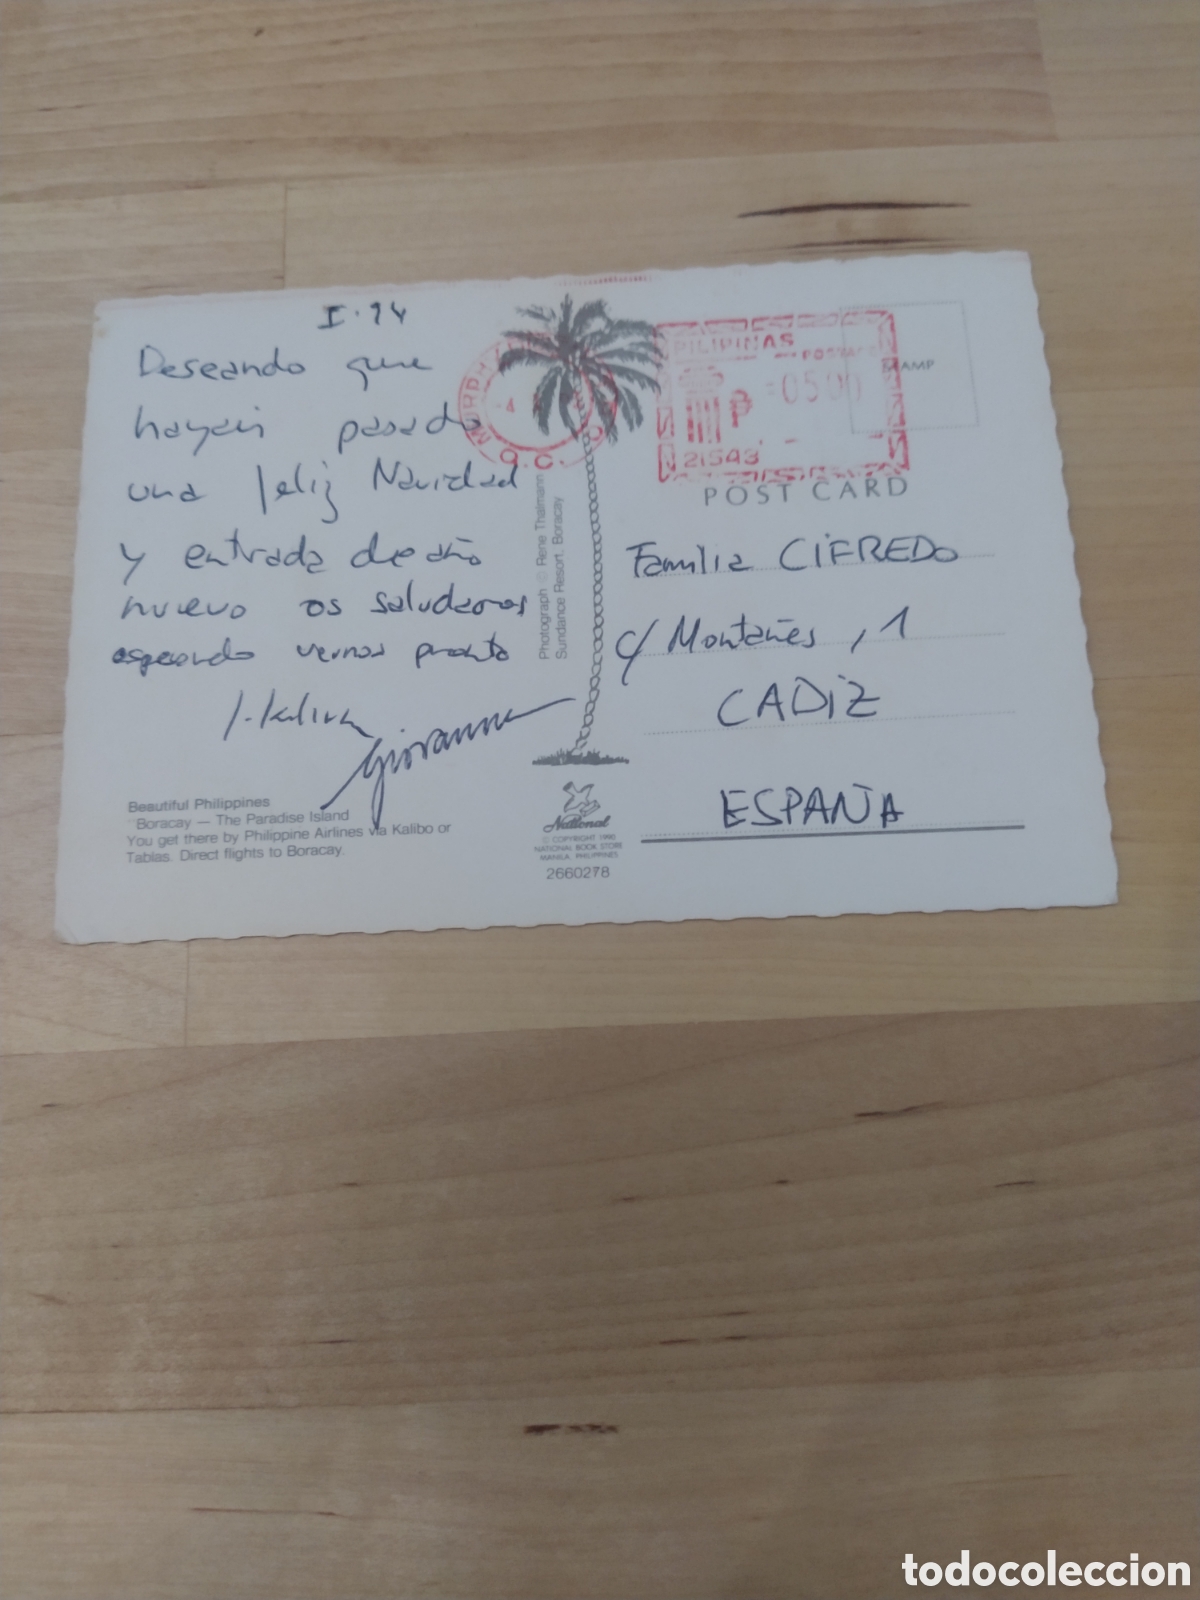 I·94
Deseando que
hayáis pasado
una feliz Navidad
y entrada de año
nuevo os saludamos
esperando vernos pronto
Giovanna
Beautiful Philippines
Boracay — The Paradise Island
You get there by Philippine Airlines via Kalibo or
Tablas. Direct flights to Boracay.
Photograph © Rene Thalmann
Sundance Resort, Boracay
National
© COPYRIGHT 1990
NATIONAL BOOK STORE
MANILA, PHILIPPINES
2660278
MURPHY
4
Q.C.
PILIPINAS
POSTAGE
₱ 0500
21543
STAMP
POST CARD
Familia CIFREDO
c/ Montañés, 1
CADIZ
ESPAÑA
todocoleccion